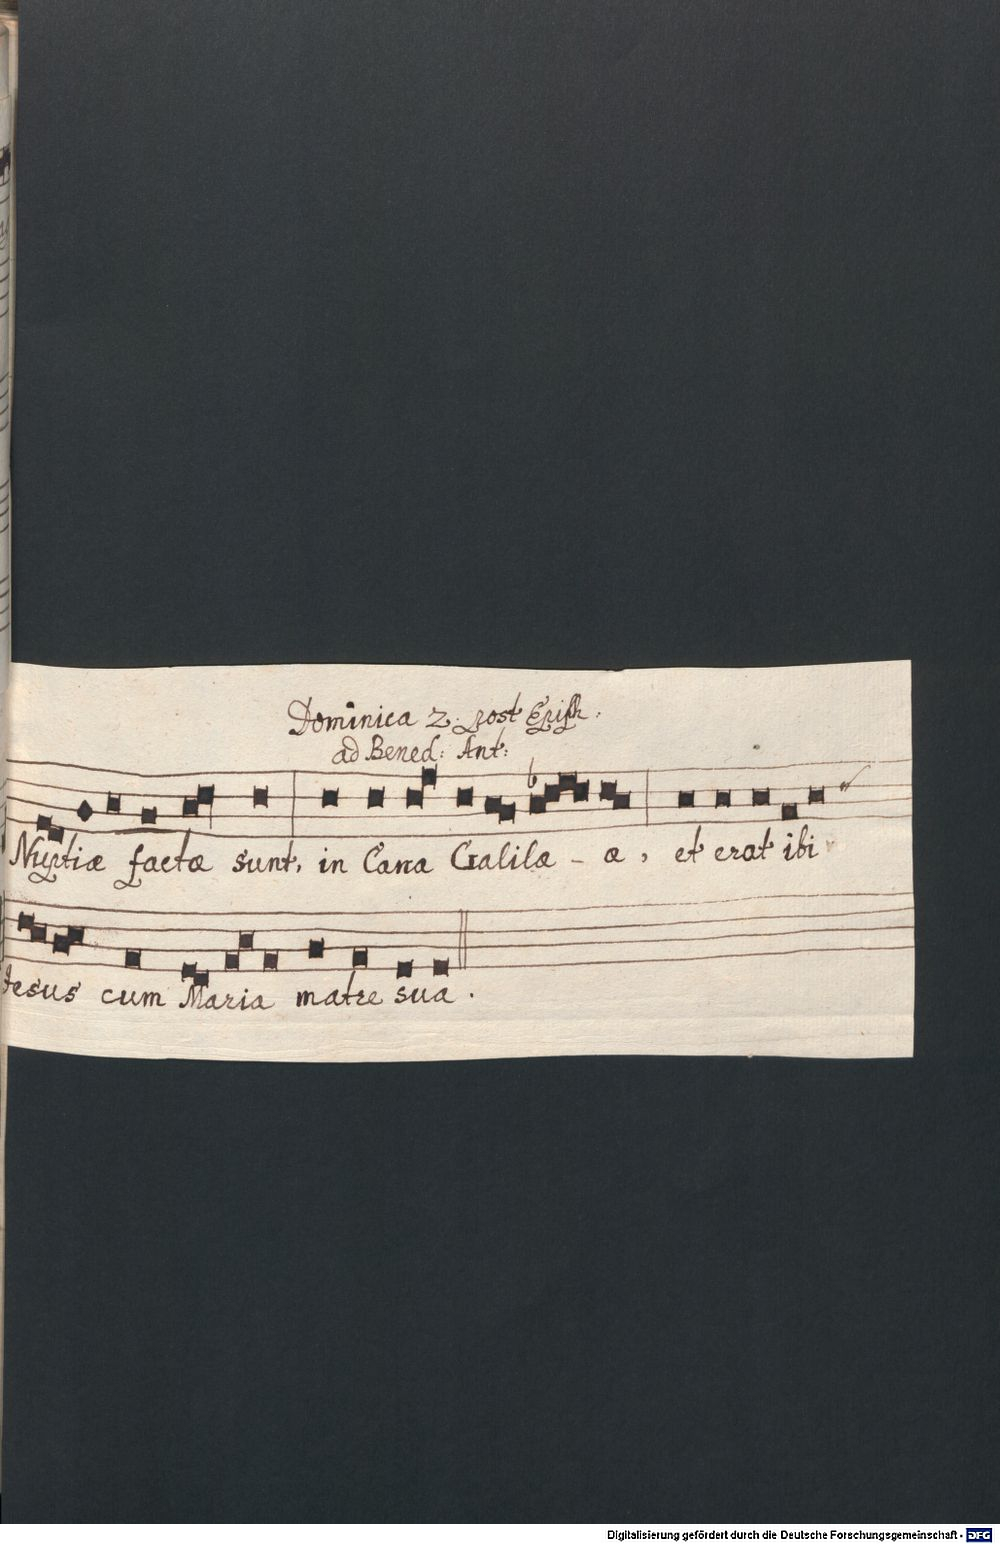 Dominica 2. post Epiph:
ad Bened: Ant:
Nuptiæ factæ sunt, in Cana Galilæ - æ, et erat ibi
Jesus cum Maria matre sua.
Digitalisierung gefördert durch die Deutsche Forschungsgemeinschaft - DFG